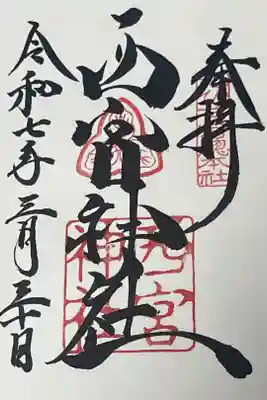 奉拝
總本社
西宮神社
西宮
神社
令和七年三月三十日